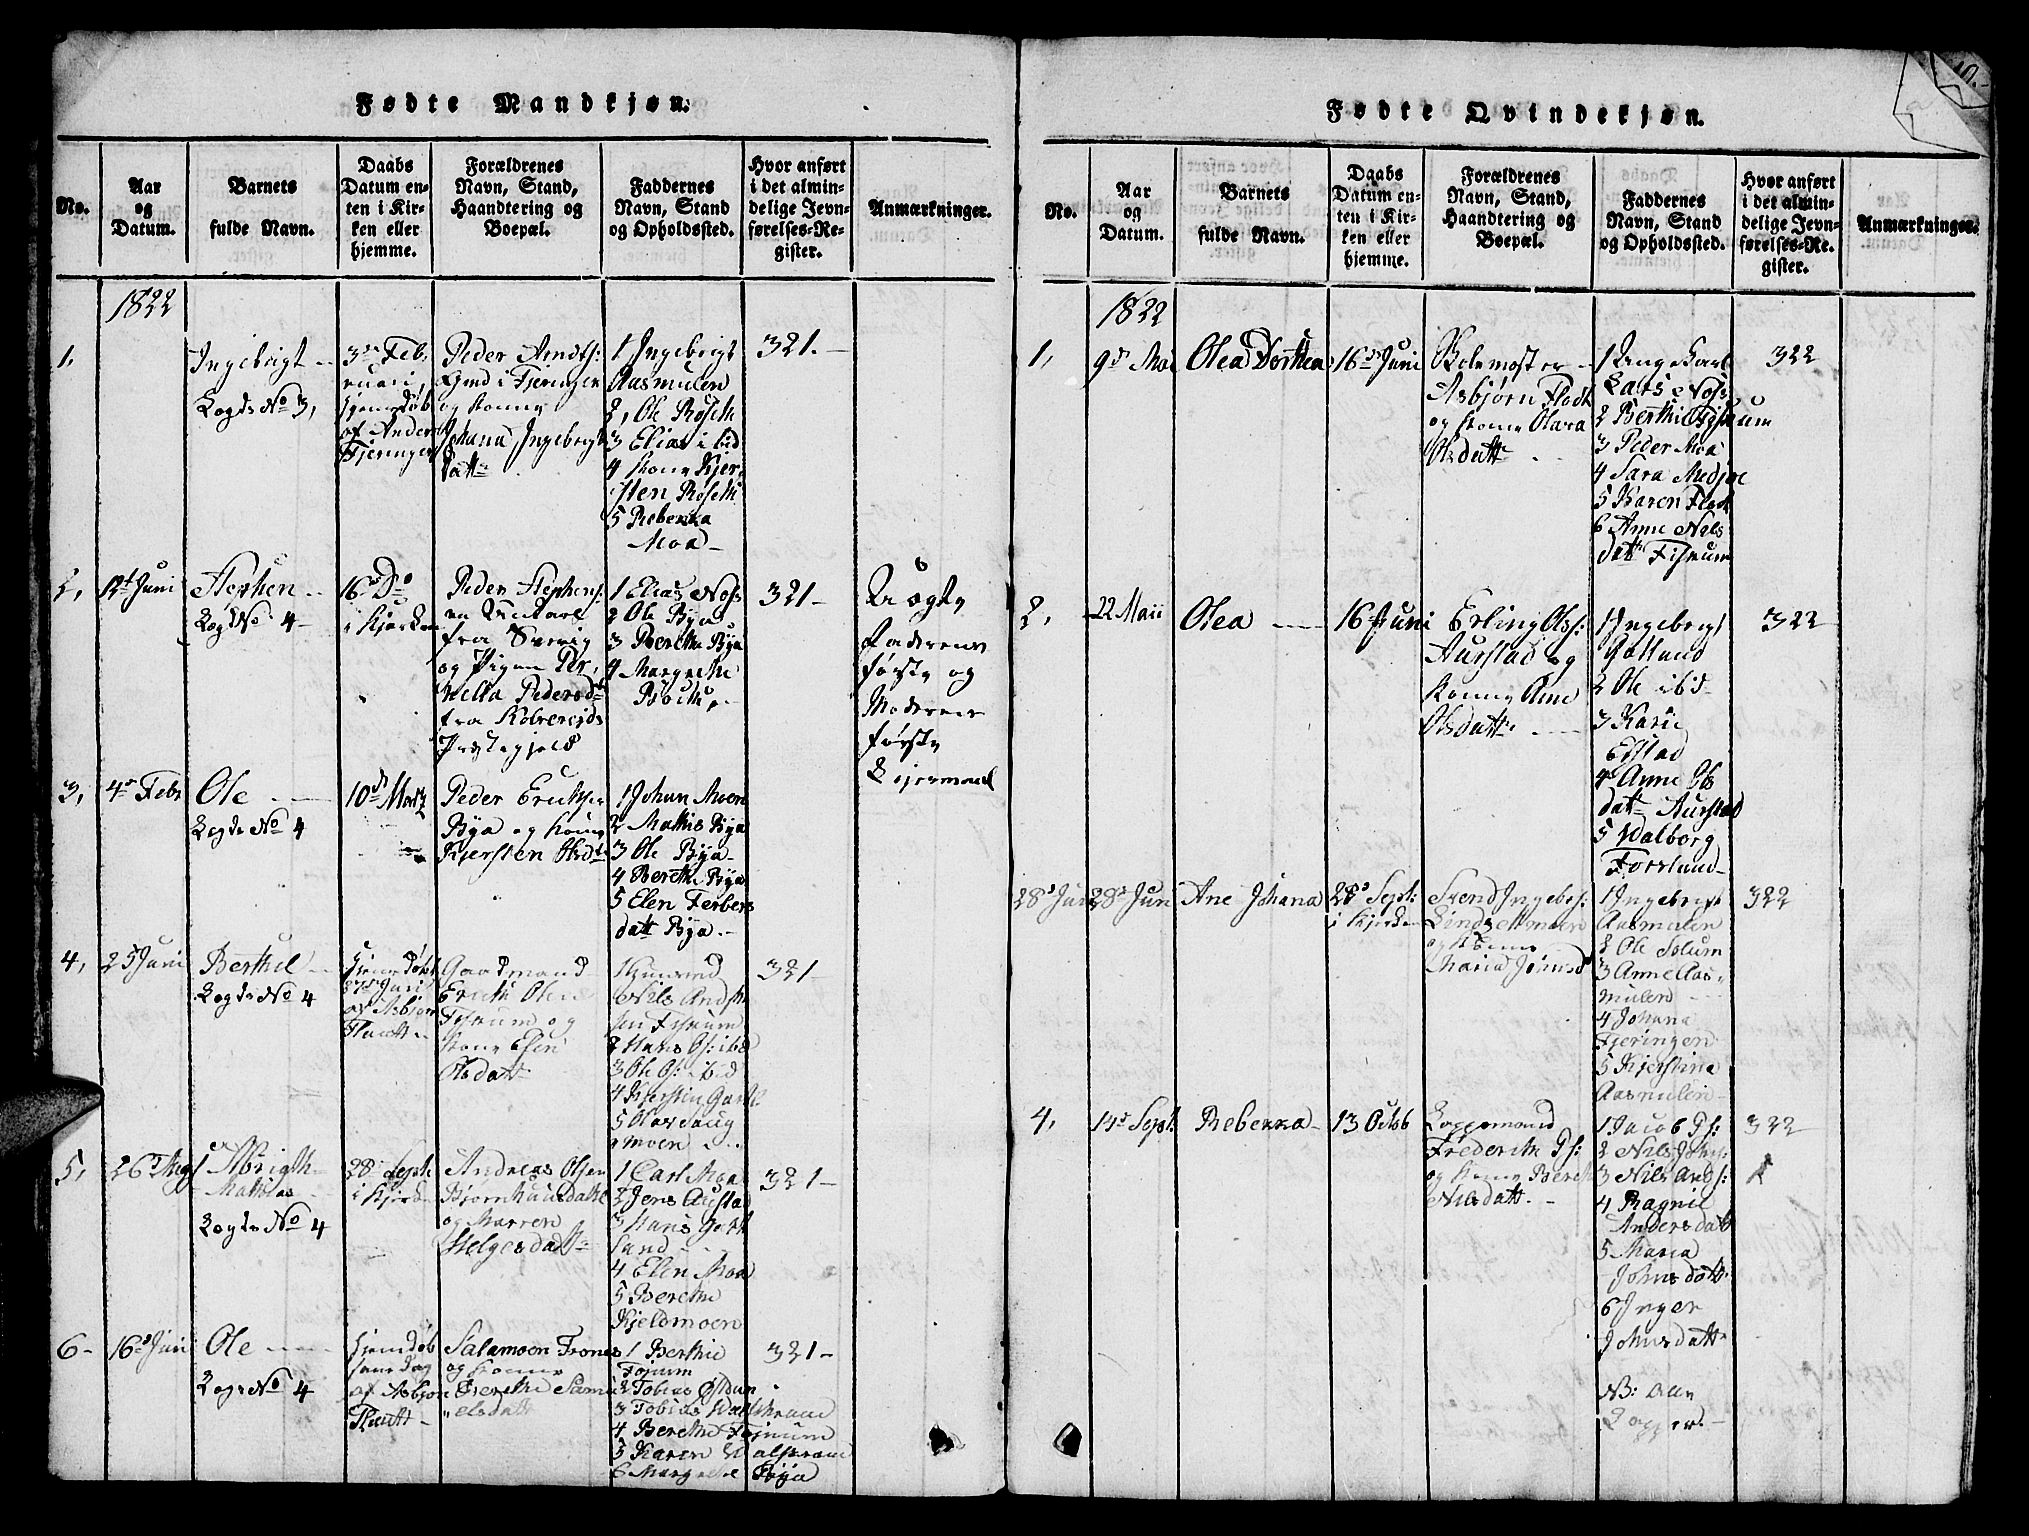 Fødte Mandkjøn.
No.
Aar
og
Datum.
Barnets
fulde Navn.
Daabs
Datum en-
ten i Kir-
ken eller
hjemme.
Forældrenes
Navn, Stand,
Haandtering og
Boepæl.
Faddernes
Navn, Stand
og Opholdssted.
Hvor anført
i det almin-
delige Jevn-
førelses-Re-
gister.
Anmærkninger.
1822
1,
Ingebrigt
Lægds No 3,
3de Feb,
ruari,
hjemdøb
af Anders
Fjeringen
Peder Arndts:
Gmd i Fjeringen
og Kone
Johana Ingebrigts
datt
1, Ingebrigt
Aasmulen
2, Ole Røseth
3 Elias ibid
4 Kone Kjer
sten Røseth
5 Rebekka
Moa
321.
2,
12t Juni
Stephen
Lægd No 4
16 Do
i Kjørken
Peder Stephens:
en
fra Sverig
og Pigen Per,
nella Pedersdt
fra Kolvereids
Præstegjeld
1 Elias Noss
2 Ole Bya
3 Berethe Bya
4 Margrethe
321
Uægte
Faderens
første og
Moderens
første
Leiermaal
3,
4de Febr
Ole
Lægds No 4
10de Martz
Peder Erichsen
Bya og Kone
Kjersten Olsdt
1 Johan Moen
2 Mathis Bya
3 Ole Bya
4 Berethe Bya
5 Elen Ferbers
datt Bya
4,
25 Juni
Berthel
Lægds No 4
hjemdøbt
27de Juni
af Asbjørn
Flaatt
Gaardmand
Erich Olsen
Fiskum og
Kone Elen
Olsdatt
Nils Andr
sen Fiskum
2 Hans Os: ibd
3 Ole Os: ibid
4 Kjerstin
5 Olava
moen
321
5,
26 Aug
Albrigth
Mathias
Lægds No 4
28 Septb
i Kjørk
Andreas Olsen
Bjørnhaasdahl
og Marren
Helgesdatt
1 Carl Moa
2 Jens Austad
3 Hans
land
4 Elen Moa
5 Berethe
Kjeldmoen
321
6
16 Juni
Ole
Lægs No 4
hjemdøb
samedag
af Asbjørn
Flaatt
Salamoen Trones
og Kone
Berethe Samu
elsdatt
1 Berthie
Fiskum
2 Tobias
3 Tobias
4 Berethe Fiskum
5 Karen
6 Margrete Bya
321
Fødte Qvindekjøn.
10.
No.
Aar
og
Datum.
Barnets
fulde Navn.
Daabs
Datum en-
ten i Kir-
ken eller
hjemme.
Forældrenes
Navn, Stand,
Haandtering og
Boepæl.
Faddernes
Navn, Stand
og Opholdssted.
Hvor anført
i det almin-
delige Jevn-
førelses-Re-
gister.
Anmærkninger.
1822
1,
9de Mai
Olea Dorthea
16de Juni
Skolemester
Asbjørn Flodt
og Kone Olava
Olsdatt
1 Ungekarl
Lars Noss
2 Berthie Fiskum
3 Peder Moa
4 Sara Medjoe
5 Karen Flodt
6 Anne Nels
datt Fiskum
322
2,
22 Maii
Olea
16 Juni
Erling Ols:
Aurstad og
Kone Ane
Olsdatt
1 Ingebrigt
Gotland
2 Ole ibid
3 Karie
4 Anne Ols
datt Aurstad
5 Walborg
Forslund
322
28de Juni
28de Juni
Ane Johana
28de Sept:
i Kjørken
Svend Ingebr:
Lindsettmoen
og Kone
Maria Johnsd
1 Ingebrigt
Aasmulen
2 Ole Solum
3 Anne Aas,
mulen
4 Johana
Fjeringen
5 Kjerstine
Aasmulen
322
4,
14de Sept:
Rebekka
13 Octob
Lappemand
Frederik Ps:
og Kone Bereth
Nilsdatt.
1 Jacob Ps:
2 Nils Johns:
3 Nils Ands:
4 Ragnil
Andersdatt
5 Maria
Johnsdatt
6 Inger
Johnsdatt
NB: alle
Lapper.
322